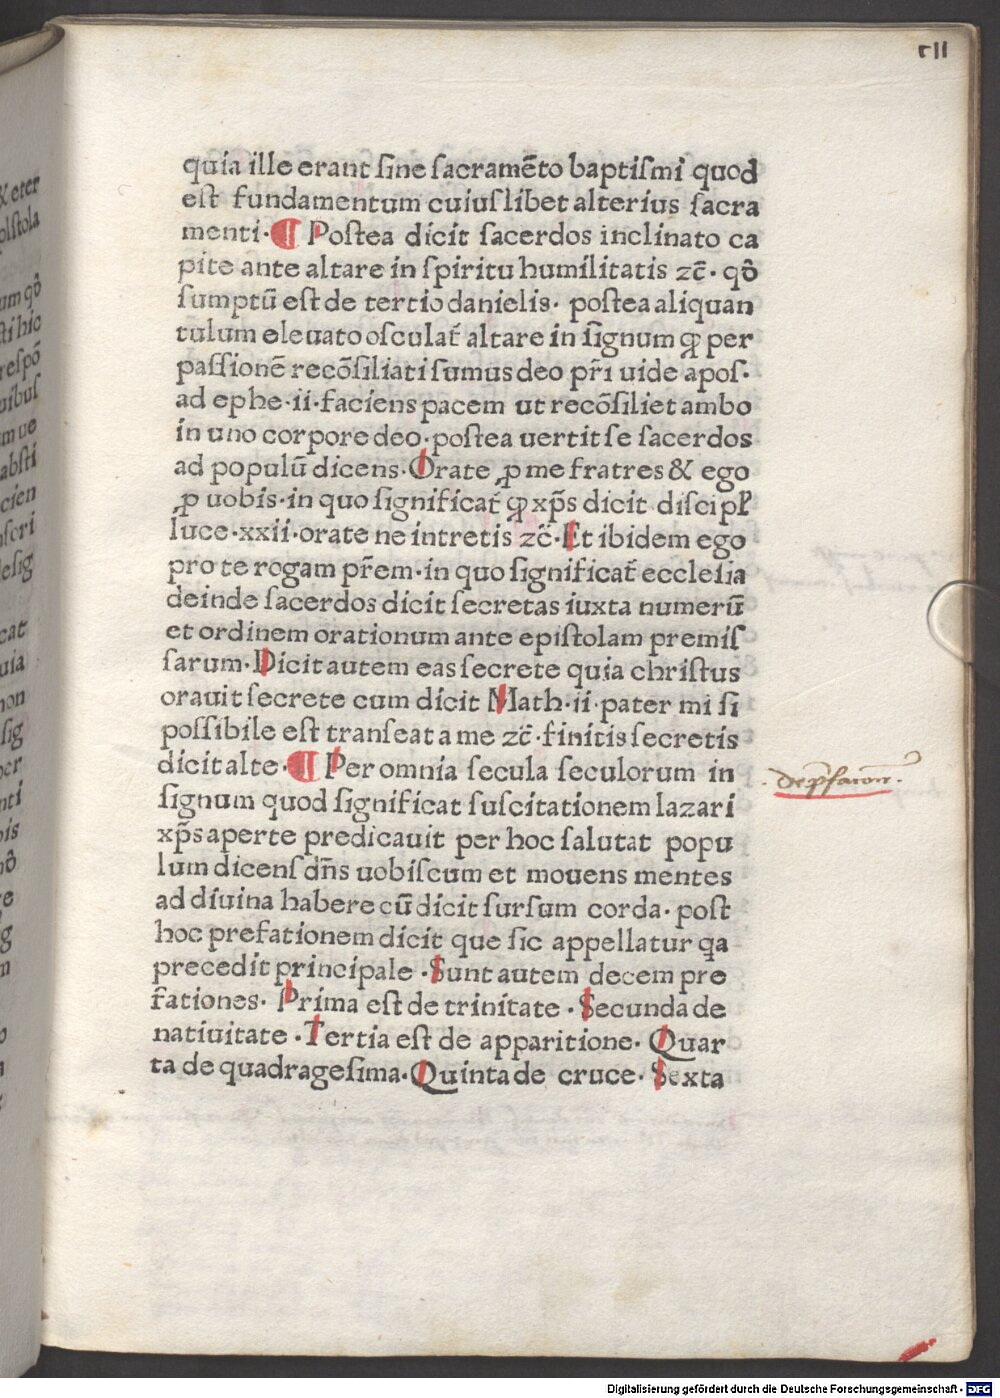 quia ille erant sine sacramēto baptiſmi quod
eſt fundamentum cuiuſlibet alterius ſacra
menti·¶ Poſtea dicit ſacerdos inclinato ca
pite ante altare in ſpiritu humilitatis ⁊c̄· qō
ſumptū eſt de tertio danielis· poſtea aliquan
tulum eleuato oſculat̄ altare in ſignum ꝙ per
paſſionē recōſiliati ſumus deo pr̄i uide apoſ·
ad ephe·ii·faciens pacem ut recōſiliet ambo
in uno corpore deo·poſtea uertit ſe ſacerdos
ad populū dicens·Orate ꝓ me fratres & ego
ꝓ uobis·in quo ſignificat̄ ꝙ xp̄s dicit diſcipl̄
luce·xxii·orate ne intretis ⁊c̄·Et ibidem ego
pro te rogam pr̄em·in quo ſignificat̄ eccleſia
deinde ſacerdos dicit ſecretas iuxta numerū
et ordinem orationum ante epiſtolam premiſ
ſarum·Dicit autem eas ſecrete quia chriſtus
orauit ſecrete cum dicit Math·ii·pater mi ſi
poſſibile eſt tranſeat a me ⁊c̄·finitis ſecretis
dicit alte·¶ Per omnia ſecula ſeculorum in
ſignum quod ſignificat ſuſcitationem lazari
xp̄s aperte predicauit per hoc ſalutat popu
lum dicenſ dn̄s uobiſcum et mouens mentes
ad diuina habere cū dicit ſurſum corda· poſt
hoc prefationem dicit que ſic appellatur qa
precedit principale ·Sunt autem decem pre
fationes· Prima eſt de trinitate ·Secunda de
natiuitate ·Tertia eſt de apparitione· Quar
ta de quadrageſima·Quinta de cruce· Sexta
Digitalisierung gefördert durch die Deutsche Forschungsgemeinschaft · DFG